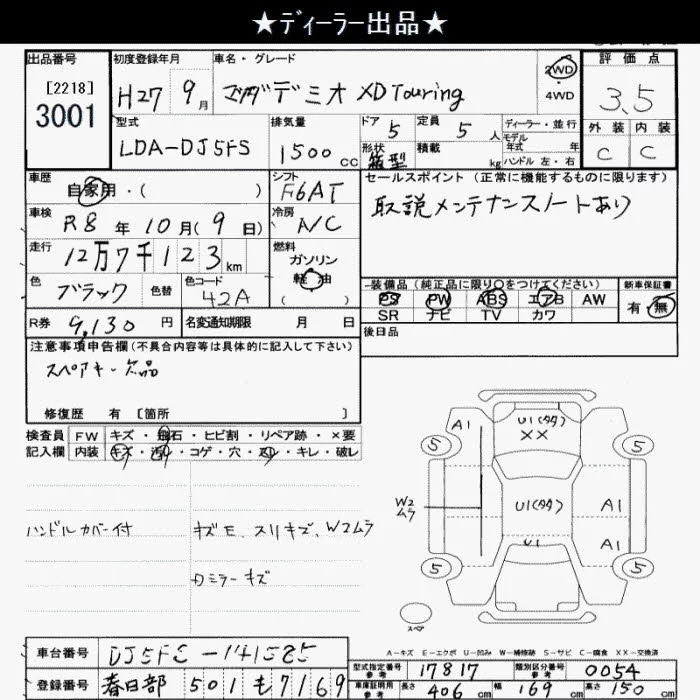 ★ディーラー出品★
出品番号 初度登録年月 車名・グレード 2WD 評価点
[2218] H27 9月 マツダデミオ XD Touring 4WD 3.5
3001
型式 排気量 ドア 定員 ディーラー・並行 外装 内装
LDA-DJ5FS 1500cc 5 5人 モデル年式 年 C C
形状 箱型 積載 kg ハンドル 左・右
車歴 シフト セールスポイント (正常に機能するものに限ります)
自家用・( ) F6AT 取説メンテナンスノートあり
車検 R8年10月(9日) 冷房 A/C
走行 12万7千123km 燃料 ガソリン
軽油
色 ブラック 色替 色コード 42A ( )
装備品 (純正品に限り○をつけてください) 新車保証書
PS PW ABS エアB AW 有・無
SR ナビ TV カワ
R券 9,130円 名変通知期限 月 日 後日品
注意事項申告欄(不具合内容等は具体的に記入して下さい)
スペアキー欠品
修復歴 有 〔箇所 〕
検査員 FW キズ・飛石・ヒビ割・リペア跡・×要
記入欄 内装 キズ・汚れ・コゲ・穴・・キレ・破レ
ハンドルカバー付 キズE、スリキズ、W2ムラ
ミラーキズ
A1 U1(タタ)
XX
5 5
W2
ムラ U1(タタ) A1
U1 A1
5 5
スペア
A-キズ E-エクボ U-凹み W-補修跡 S-サビ C-腐食 XX-交換済
車台番号 DJ5FS-141585 型式指定番号 参考 17817 類別区分番号 参考 0054
登録番号 春日部 501 も 7169 車庫証明用 参考 長さ 406cm 幅 169cm 高さ 150cm